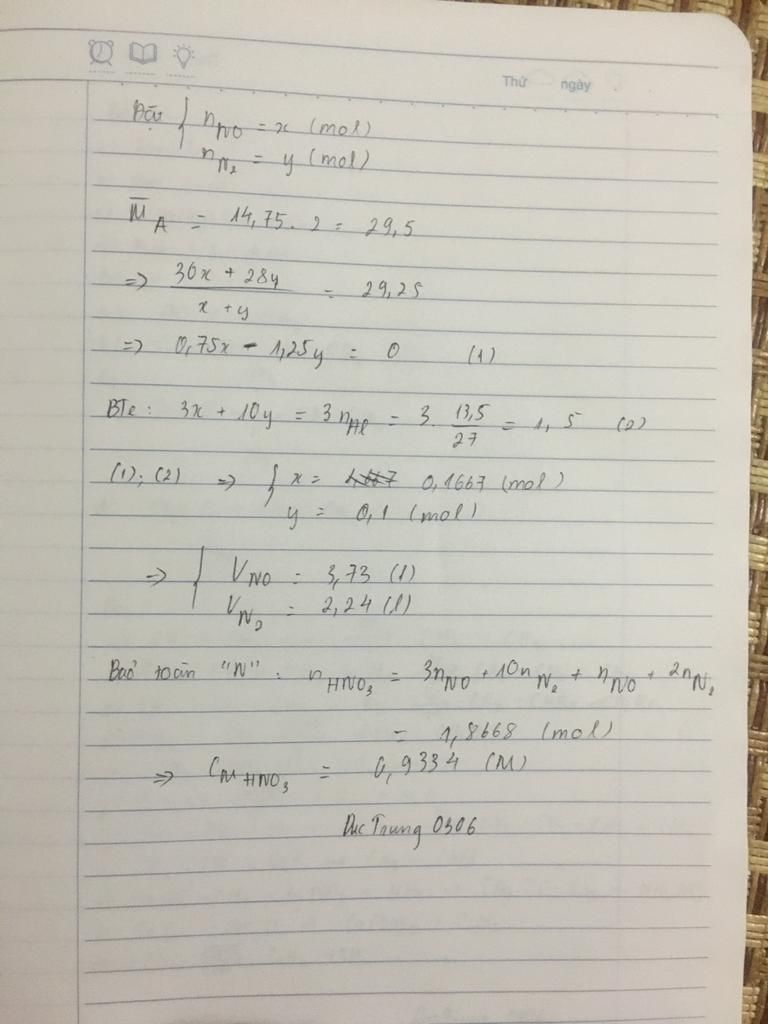 Thứ ngày
Đặt { n_NO = x (mol)
n_N₂ = y (mol)
M̅_A = 14,75 . 2 = 29,5
=> (30x + 28y)/(x + y) = 29,25
=> 0,75x - 1,25y = 0 (1)
BTe : 3x + 10y = 3 n_Al = 3. 13,5/27 = 1,5 (2)
(1); (2) => { x = 0,1667 (mol)
y = 0,1 (mol)
=> { V_NO = 3,73 (l)
V_N₂ = 2,24 (l)
Bảo toàn "N" : n_HNO₃ = 3n_NO + 10n_N₂ + n_NO + 2n_N₂
= 1,8668 (mol)
=> C_M HNO₃ = 0,9334 (M)
Duc Trung 0306